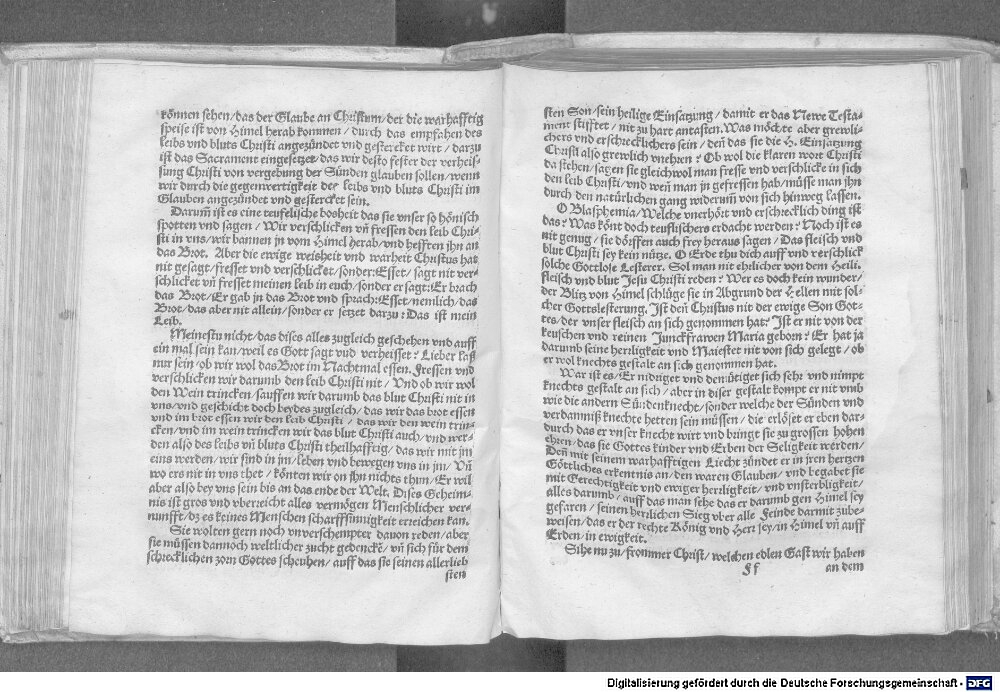 können sehen/das der Glaube an Christum/der die warhafftig
speise ist von Himel herab kommen/durch das empfahen des
leibs vnd bluts Christi angezündet vnd gesterckt wirt/darzu
ist das Sacrament eingesetzet/das wir desto fester der verheis-
sung Christi von vergebung der Sünden glauben sollen/wenn
wir durch die gegenwertigkeit des leibs vnd bluts Christi im
Glauben angezündet vnd gestercket sein.
Darum̃ ist es eine teufelische bosheit das sie vnser so hönisch
spotten vnd sagen/Wir verschlicken vñ fressen den leib Chri-
sti in vns/wir bannen jn vom Himel herab/vnd hefften jhn an
das Brot. Aber die ewige weisheit vnd warheit Christus hat
nit gesagt/fresset vnd verschlicket/sonder:Esset/sagt nit ver-
schlicket vñ fresset meinen leib in euch/sonder er sagt:Er brach
das Brot/Er gab jn das Brot vnd sprach:Esset/nemlich/das
Brot/das aber nit allein/sonder er setzet darzu:Das ist mein
Leib.
Meinestu nicht/das dises alles zugleich geschehen vnd auff
ein mal sein kan/weil es Gott sagt vnd verheisset? Lieber laß
nur sein/ob wir wol das Brot im Nachtmal essen. Fressen vnd
verschlicken wir darumb den leib Christi nit/Vnd ob wir wol
den Wein trincken/sauffen wir darumb das blut Christi nit in
vns/vnd geschicht doch beydes zugleich/das wir das brot essen
vnd im brot essen wir den leib Christi/das wir den wein trin-
cken/vnd im wein trincken wir das blut Christi auch/vnd wer-
den also des leibs vñ bluts Christi theilhafftig/das wir mit jm
eins werden/wir sind in jm/leben vnd bewegen vns in jm/Vñ
wo ers nit in vns thet/könten wir on jhn nichts thun/Er wil
aber also bey vns sein bis an das ende der Welt. Dises Geheim-
nis ist gros vnd vbertrit alles vermögen Menschlicher ver-
nunfft/dz es keines Menschen scharffsinnigkeit erreichen kan.
Sie wolten gern noch vnverschempter dauon reden/aber
sie müssen dannoch weltlicher zucht gedenckẽ/vñ sich für dem
schrecklichen zorn Gottes scheuhen/auff das sie seinen allerlieb
sten
sten Son/sein heilige Einsatzung/damit er das Newe Testa-
ment stifftet/nit zu hart antasten. Was möchte aber grewli-
chers vnd erschrecklichers sein/deñ das sie die H. Einsatzung
Christi also grewlich vnehren? Ob wol die klaren wort Christi
da stehen/sagen sie gleichwol man fresse vnd verschlicke in sich
den leib Christi/vnd weñ man jn gefressen hab/müsse man jhn
durch den natürlichen gang widerum̃ von sich hinweg lassen.
O Blasphemia/Welche vnerhört vnd erschrecklich ding ist
das? Was könt doch teuflischers erdacht werden? Noch ist es
nit genug/sie dörffen auch frey heraus sagen/Das fleisch vnd
blut Christi sey kein nütze. O Erde thu dich auff vnd verschlick
solche Gottlose Lesterer. Sol man nit ehrlicher von dem Heili.
fleisch vnd blut Jesu Christi reden? Wer es doch kein wunder/
der Blitz von Himel schlüge sie in Abgrund der Hellen mit sol-
cher Gottslesterung. Ist deñ Christus nit der ewige Son Got-
tes/der vnser fleisch an sich genommen hat? Ist er nit von der
keuschen vnd reinen Junckfrawen Maria geborn? Er hat ja
darumb seine herrligkeit vnd Maiestet nit von sich gelegt/ob
er wol knechts gestalt an sich genommen hat.
War ist es/Er nidriget vnd demütiget sich sehr vnd nimpt
knechts gestalt an sich/aber in diser gestalt kompt er nit vmb
wie die andern Sündenknecht/sonder welche der Sünden vnd
verdamniß knechte hetten sein müssen/die erlöset er eben dar-
durch das er vnser knecht wirt vnd bringt sie zu grossen hohen
ehren/das sie Gottes kinder vnd Erben der Seligkeit werden/
Deñ mit seinem warhafftigen Liecht zündet er in jren hertzen
Göttliches erkentnis an/den waren Glauben/vnd begabet sie
mit Gerechtigkeit vnd ewiger herrligkeit/vnd vnsterbligkeit/
alles darumb/auff das man sehe das er darumb gen Himel sey
gefaren/seinen herrlichen Sieg vber alle Feinde darmit zube-
weisen/das er der rechte König vnd Herr sey/in Himel vñ auff
Erden/in ewigkeit.
Sihe nu zu/frommer Christ/welchen edlen Gast wir haben
Ff an dem
Digitalisierung gefördert durch die Deutsche Forschungsgemeinschaft - DFG